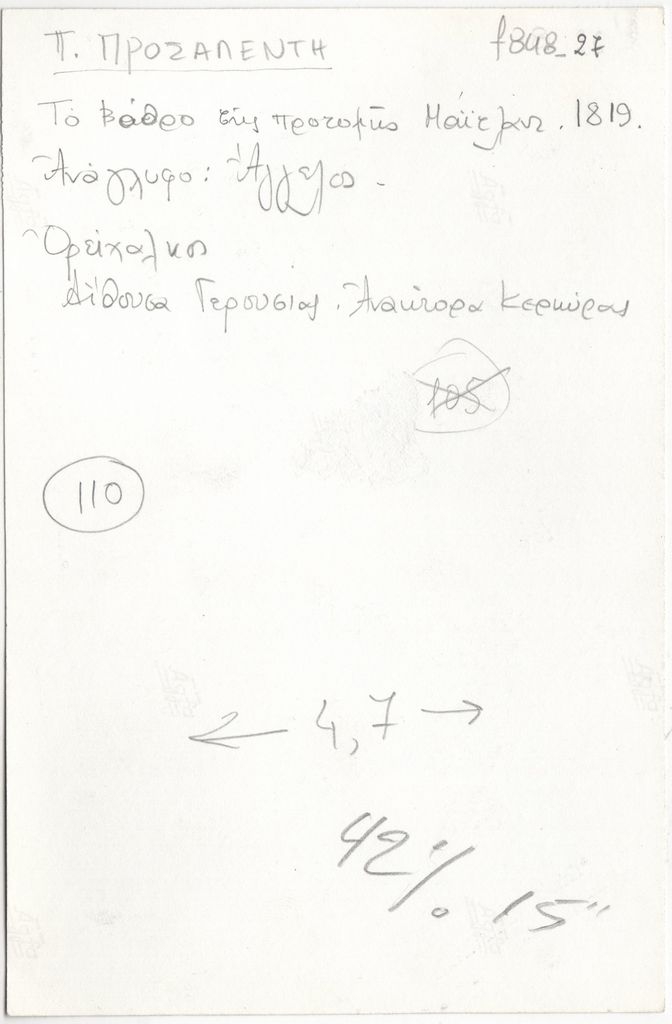 Π. ΠΡΟΣΑΛΕΝΤΗ
f848_27
Τὸ βάθρο τῆς προτομῆς Μαίτλαντ. 1819.
Ἀνάγλυφο: Ἄγγελος.
Ὀρείχαλκος
Αἴθουσα Γερουσίας. Ἀνάκτορα Κερκύρας
105
110
← 4,7 →
42% 15"